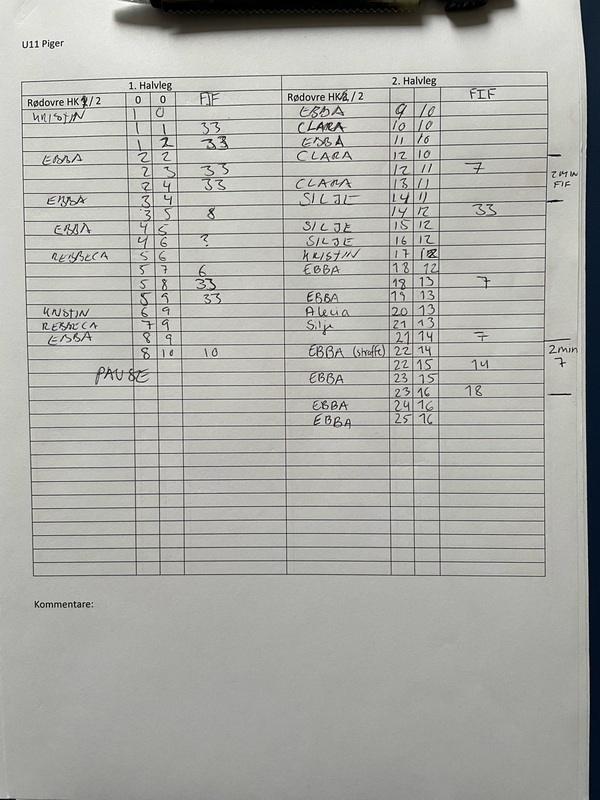 U11 Piger
1. Halvleg
Rødovre HK 1 / 2 0 0 FIF
KRISTIN 1 0
1 1 33
1 2 33
EBBA 2 2
2 3 33
2 4 33
EBBA 3 4
3 5 8
EBBA 4 5
4 6 ?
REBBECA 5 6
5 7 6
5 8 33
5 9 33
KRISTIN 6 9
REBECCA 7 9
EBBA 8 9
8 10 10
PAUSE
2. Halvleg
Rødovre HK / 2 FIF
EBBA 9 10
CLARA 10 10
EBBA 11 10
CLARA 12 10
12 11 7
CLARA 13 11
SILJE 14 11
14 12 33
SILJE 15 12
SILJE 16 12
KRISTIN 17 12
EBBA 18 12
18 13 7
EBBA 19 13
Alecia 20 13
Silje 21 13
21 14 7
EBBA (straffe) 22 14
22 15 14
EBBA 23 15
23 16 18
EBBA 24 16
EBBA 25 16
2 MIN
FIF
2 min
7
Kommentare: